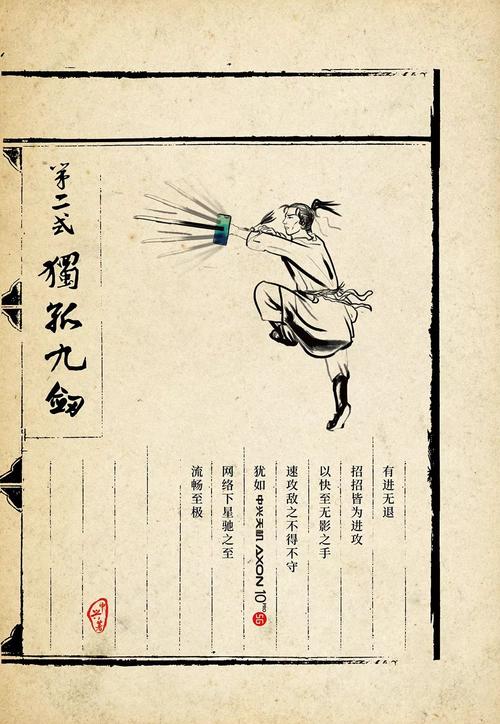 第二式
獨孤九劍
有进无退
招招皆为进攻
以快至无影之手
速攻敌之不得不守
犹如中兴天机 AXON 10 PRO 5G
网络下星驰之至
流畅至极
中兴著